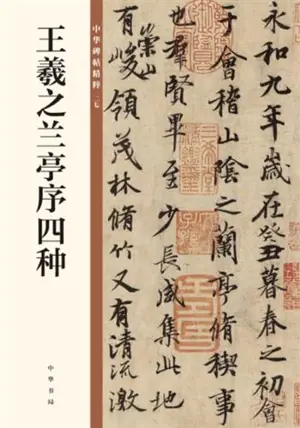 中华碑帖精粹
王羲之兰亭序四种
中华书局
永和九年歲在癸丑暮春之初會
于會稽山陰之蘭亭脩稧事
也羣賢畢至少長咸集此地
有崇山峻領茂林脩竹又有清流激